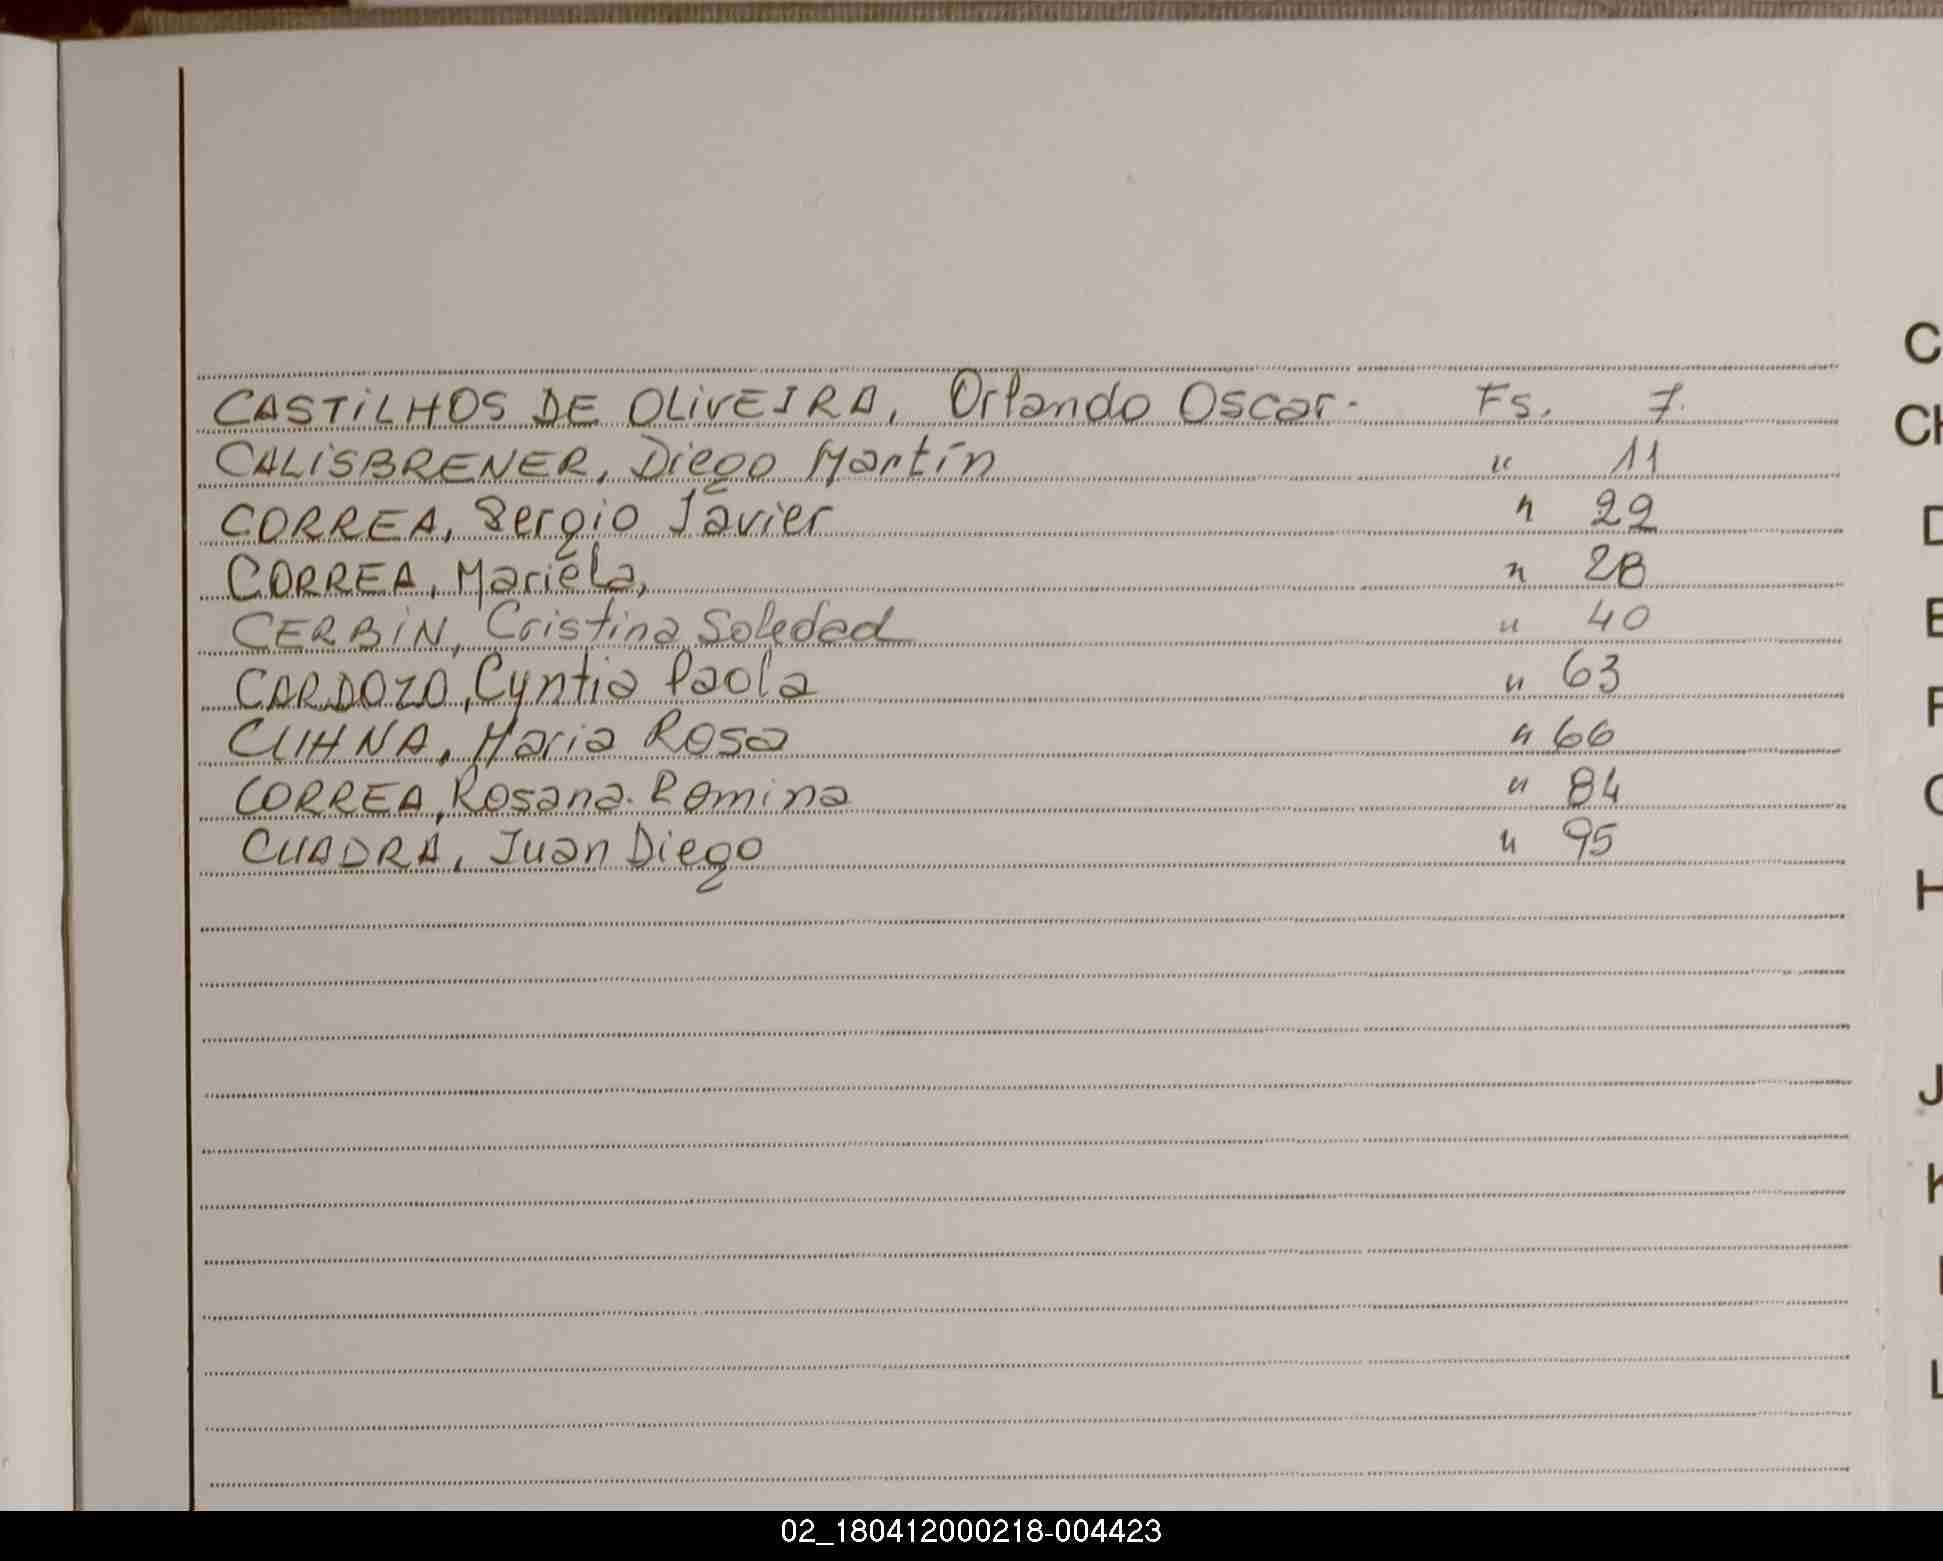 CASTILHOS DE OLIVEIRA, Orlando Oscar. Fs. 7.
CALISBRENER, Diego Martín " 11
CORREA, Sergio Javier " 22
CORREA, Mariela, " 28
CERBIN, Cristina Soledad " 40
CARDOZO, Cyntia Paola " 63
CUHNA, Maria Rosa " 66
CORREA, Rosana Romina " 84
CUADRA, Juan Diego " 95
C
CH
D
E
F
G
H
J
K
L
02_180412000218-004423